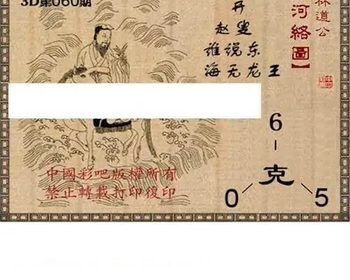 3D第060期
林道公
河络圖
丹
赵
谁说东
海无龙王
6
克
0
5
中國彩吧版權所有
禁止轉載打印復印